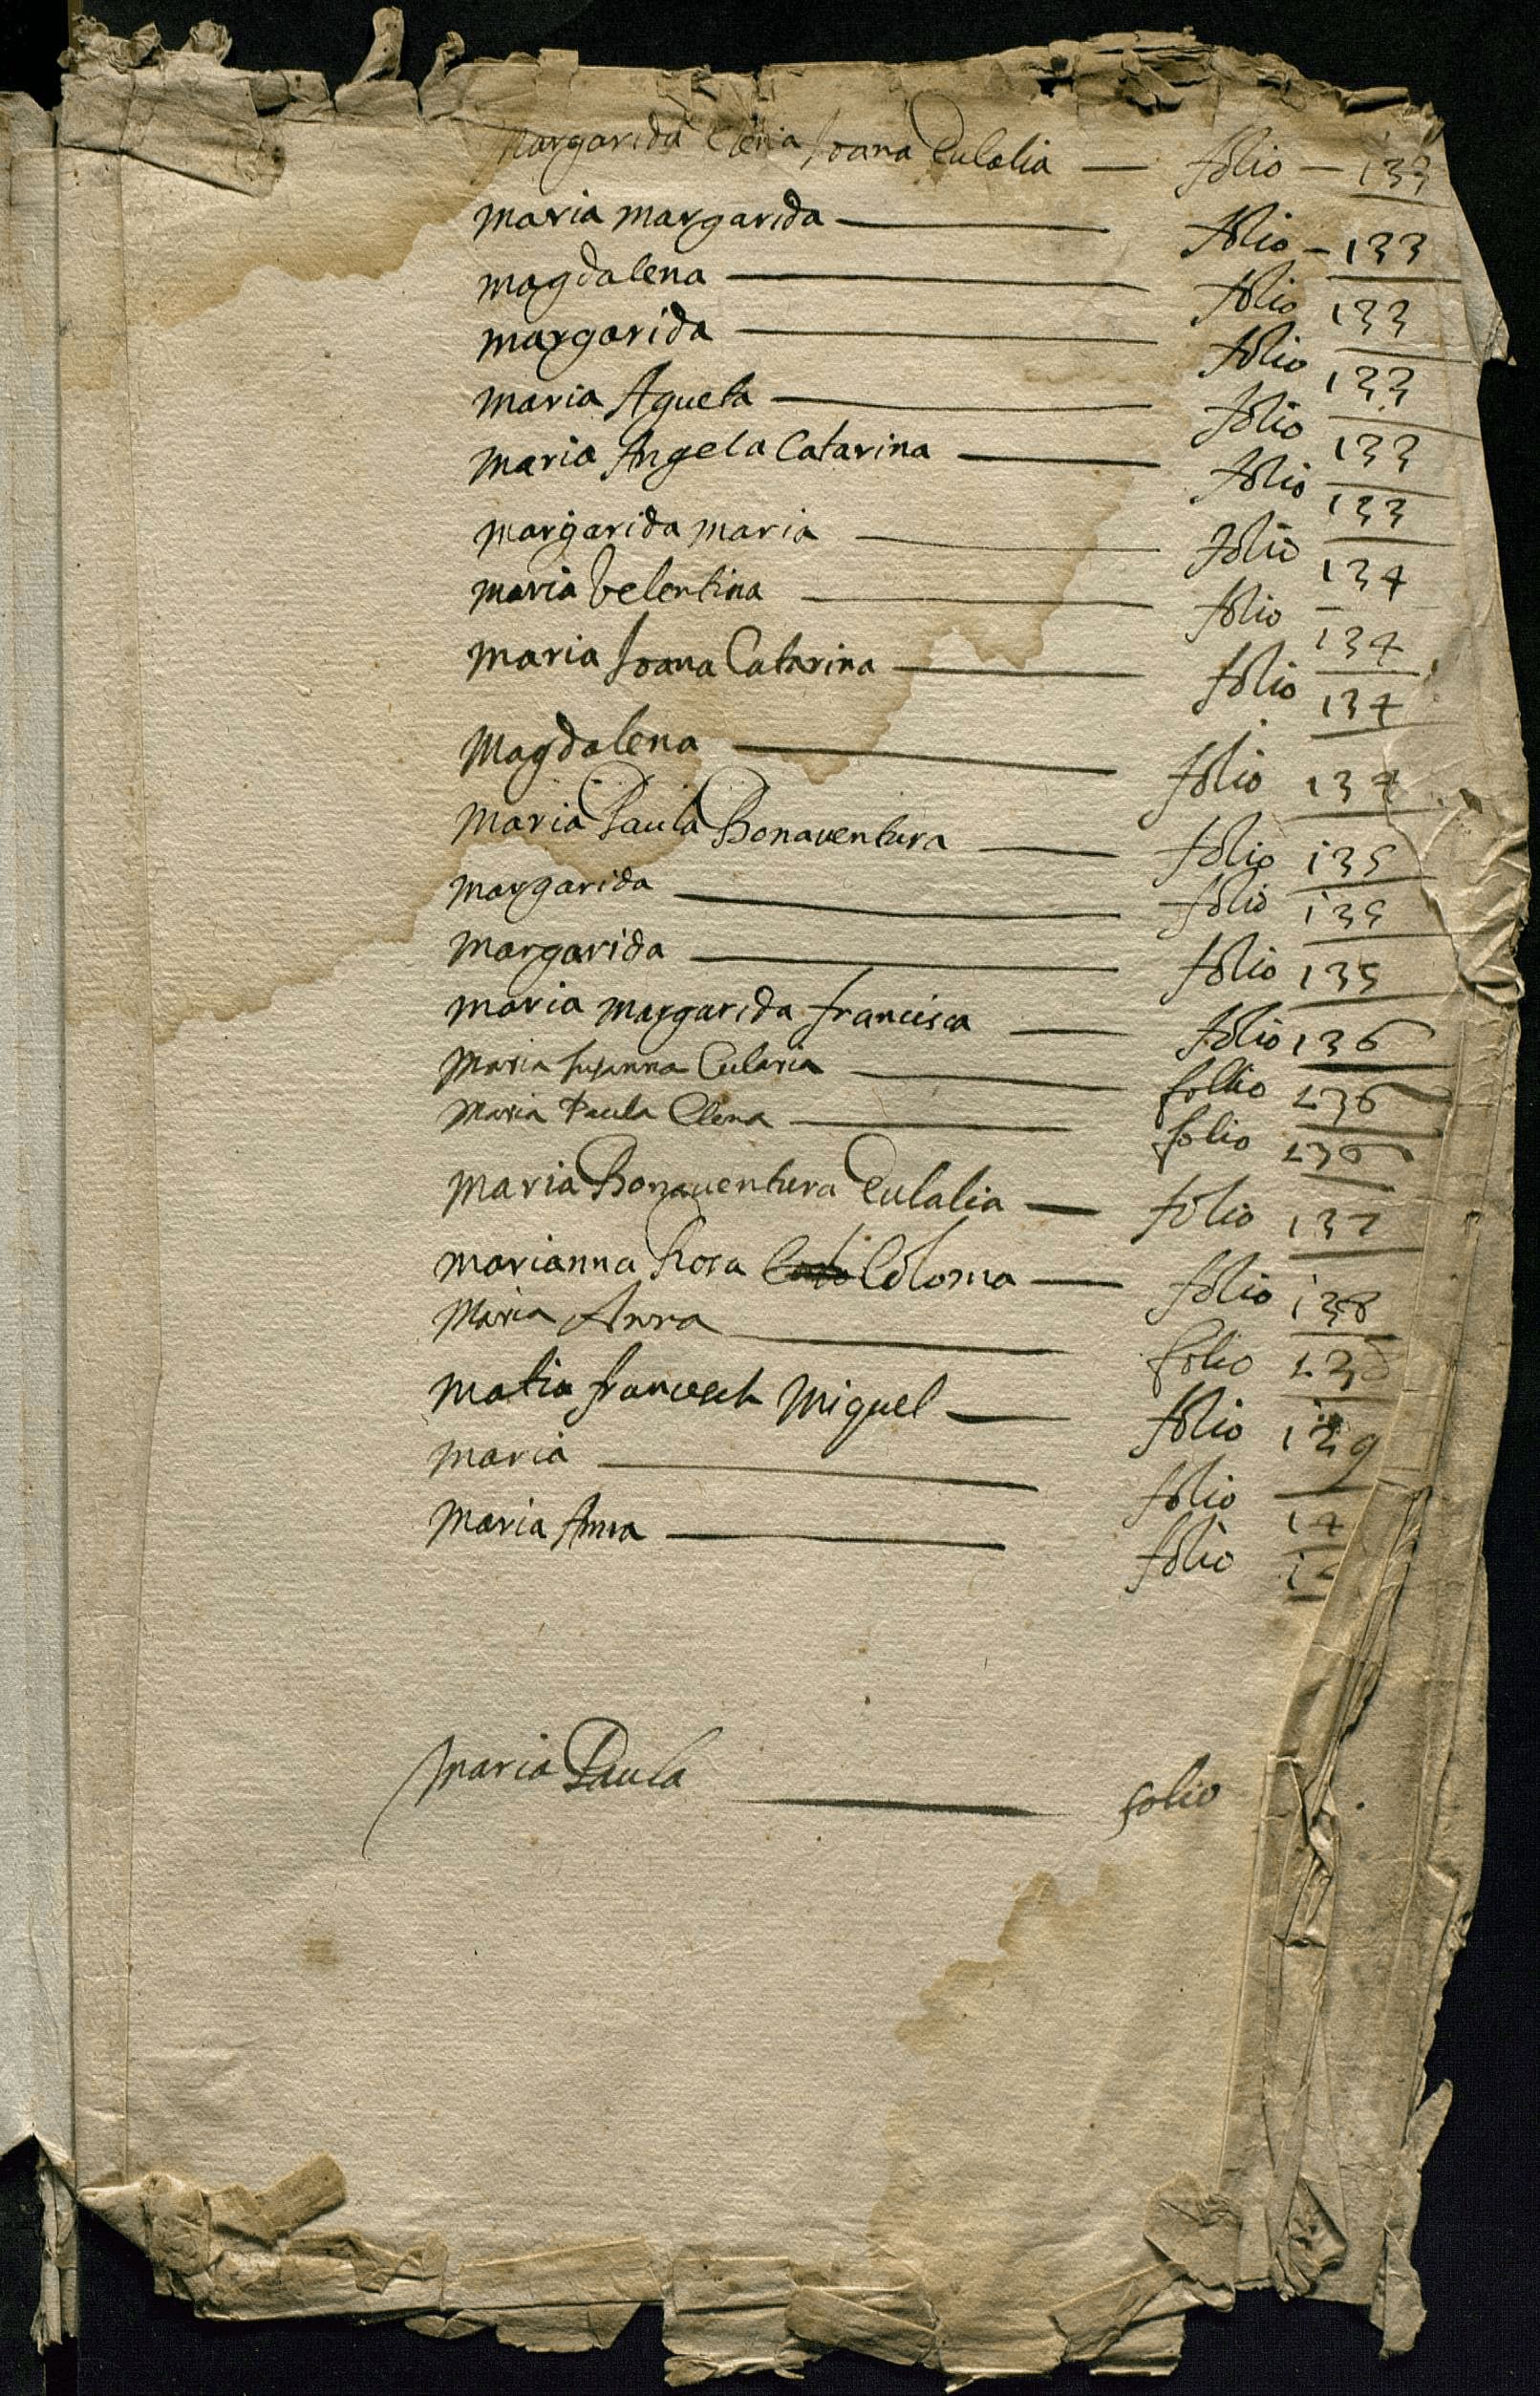 Margarida Elena Joana Eulalia — folio — 133
maria margarida — folio — 133
magdalena — folio 133
margarida — folio 133
maria Agueta — folio 133
maria Angela Catarina — folio 133
margarida maria — folio 134
maria Velentina — folio 134
maria Joana Catarina — folio 134
Magdalena — folio 134
maria Paula Bonaventura — folio 135
margarida — folio 135
margarida — folio 135
maria margarida francisca — folio 136
Maria Susanna — follio 136
Maria Paula Elena — folio 136
maria Bonaventura Eulalia — folio 137
marianna Rosa Coloma — folio 138
Maria Anna — folio 138
matia francesch Miguel — folio 139
maria — folio 14
Maria Anna — folio
maria Paula — folio